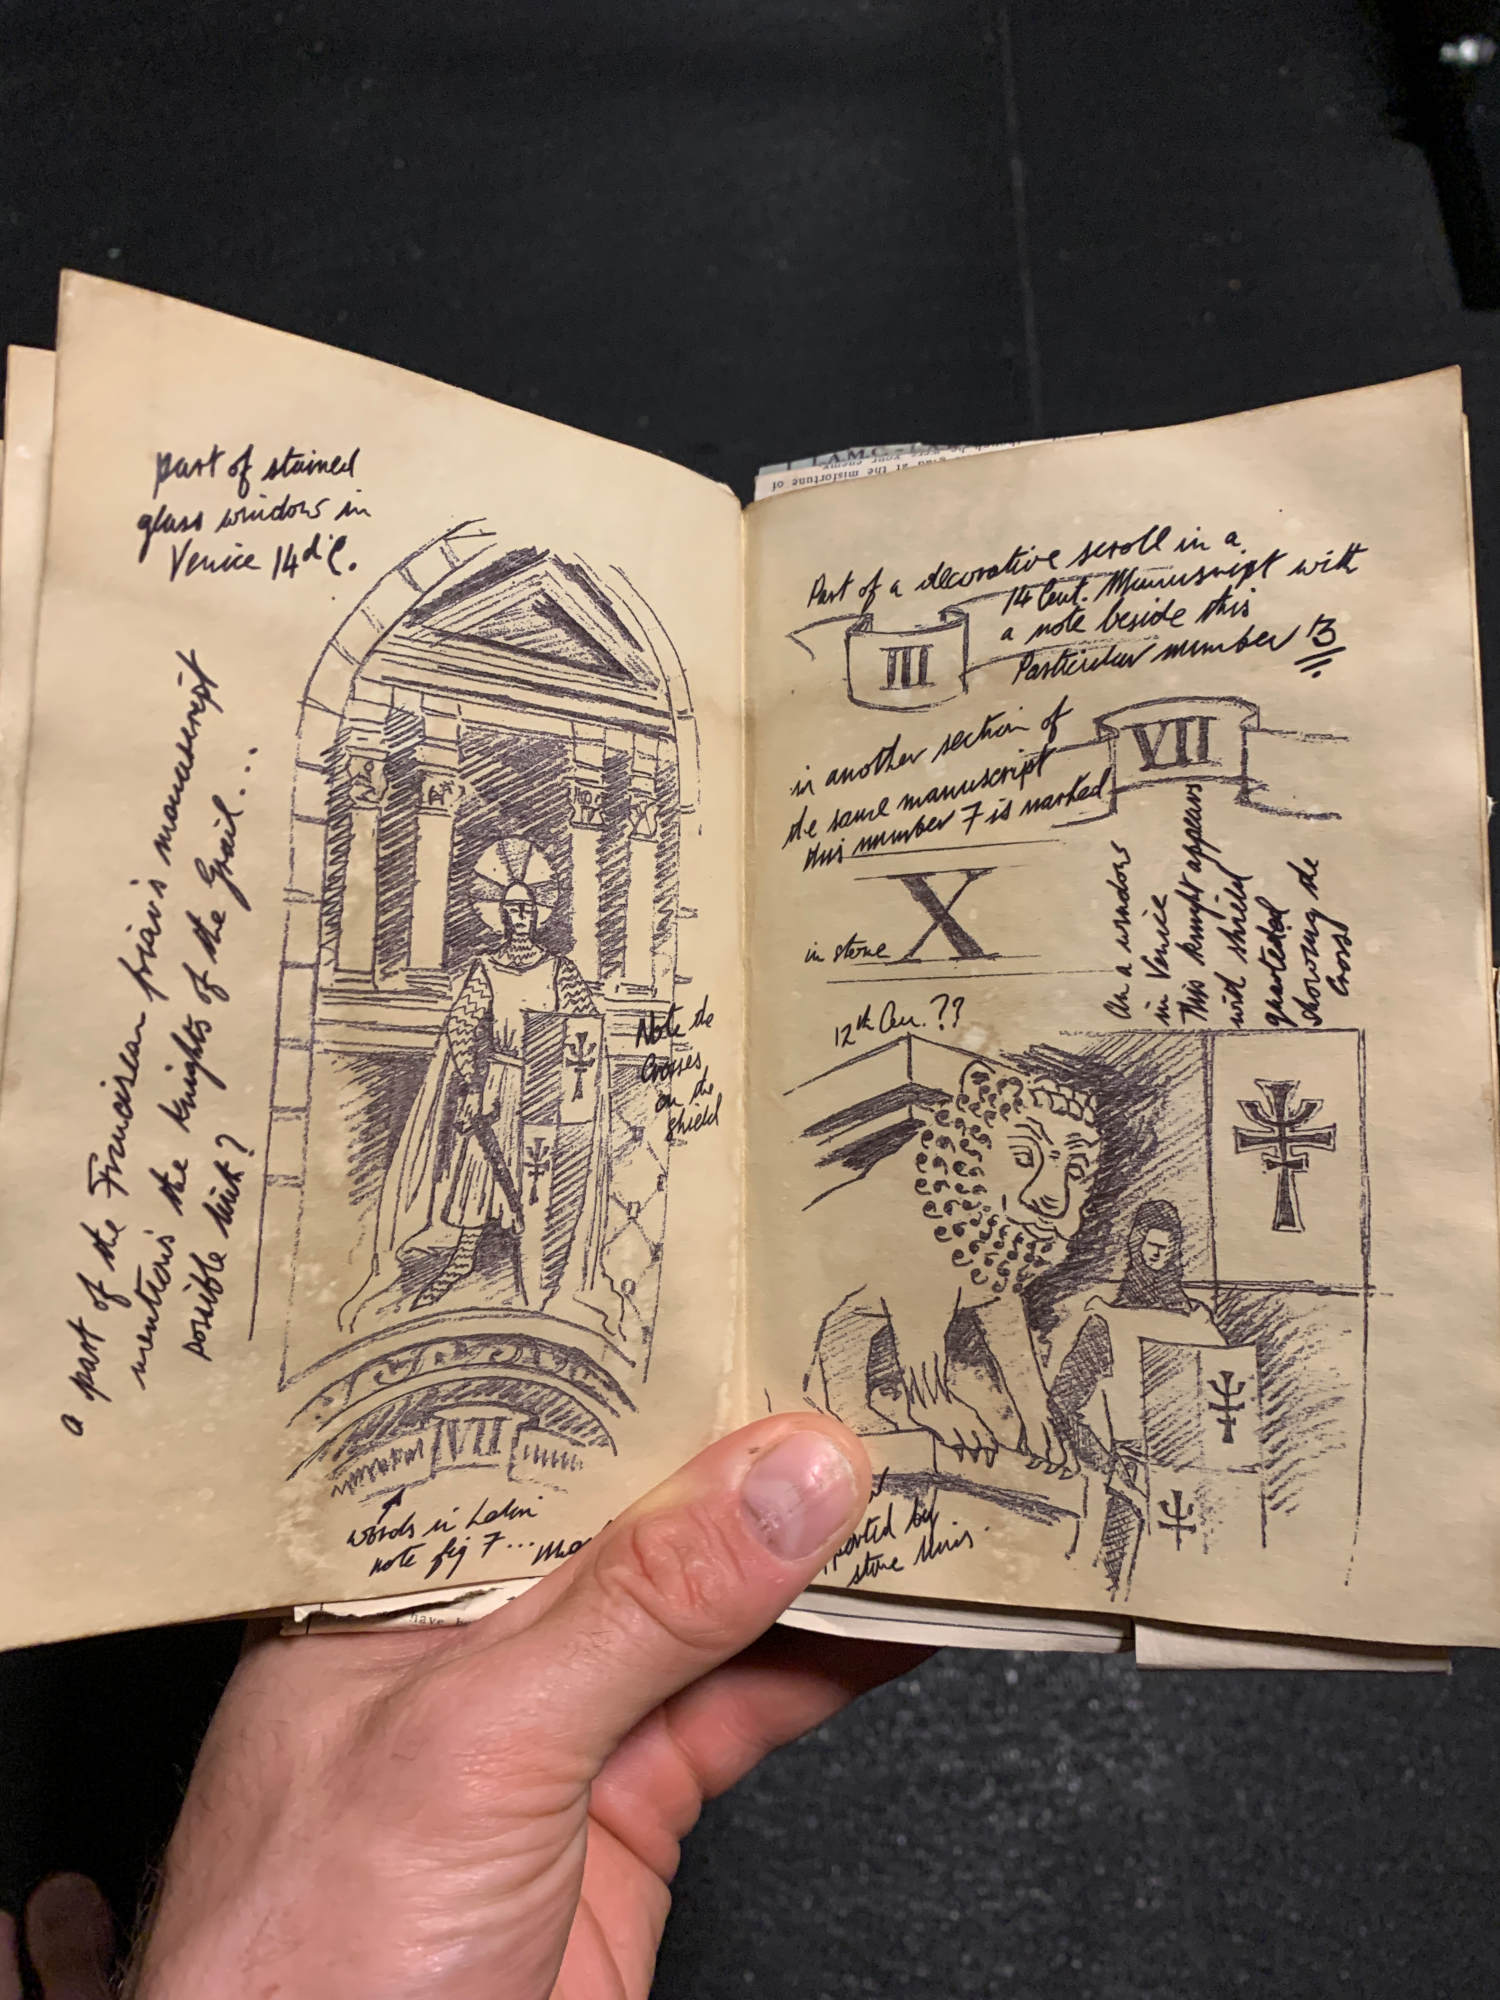 part of stained
glass window in
Venice 14d'C.
a part of the Franciscan friar's manuscript
mention's the knights of the Grail...
possible link?
Note the
Crosses
on the
shield
VII
words in Latin
note fig 7...
glad at the misfortune of
Part of a decorative scroll in a
14 Cent. Manuscript with
a note beside this
Particular number 13
III
in another section of
the same manuscript
this number 7 is marked
VII
X
in stone
On a window
in Venice
This knight appears
with shield
quartered
showing the
Cross
12th Cen. ??
by
stone